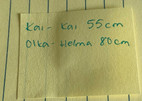 Kai - Kai 55cm
Olka - Helma 80cm